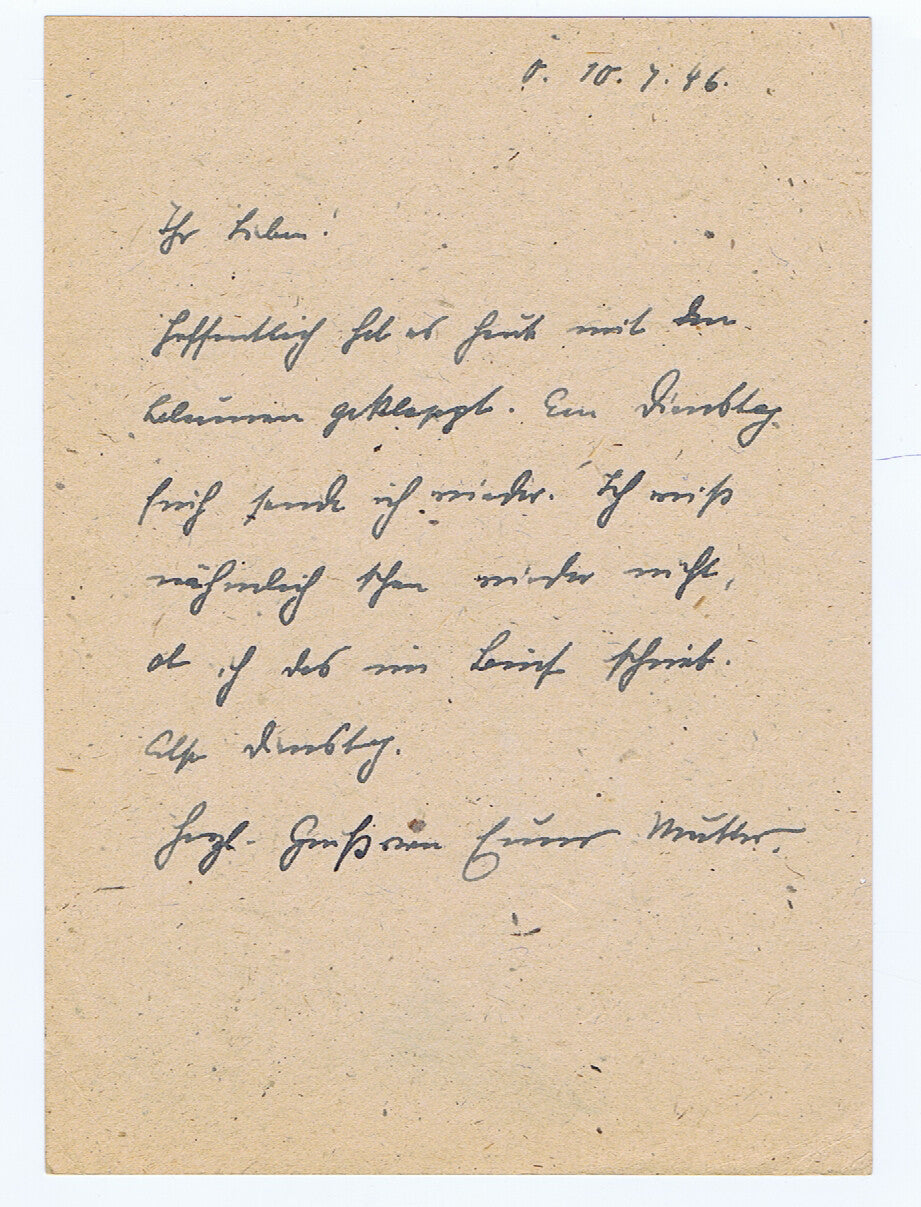 O. 10.7.46.
Ihr Lieben!
Hoffentlich hat es heute mit den
Blumen geklappt. Am Dienstag
früh sende ich wieder. Ich weiß
nähmlich schon wieder nicht,
ob ich das im Brief schrieb.
Also Dienstag.
Herzl. Grüße von Eurer Mutter.